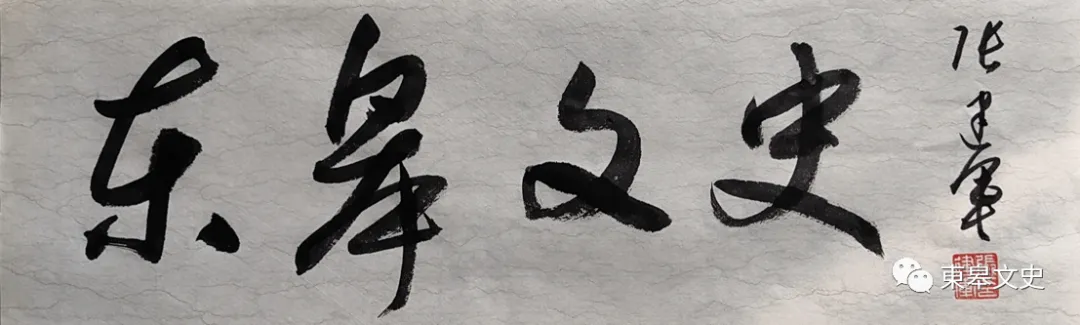 东皋文史
张建军
東皋文史